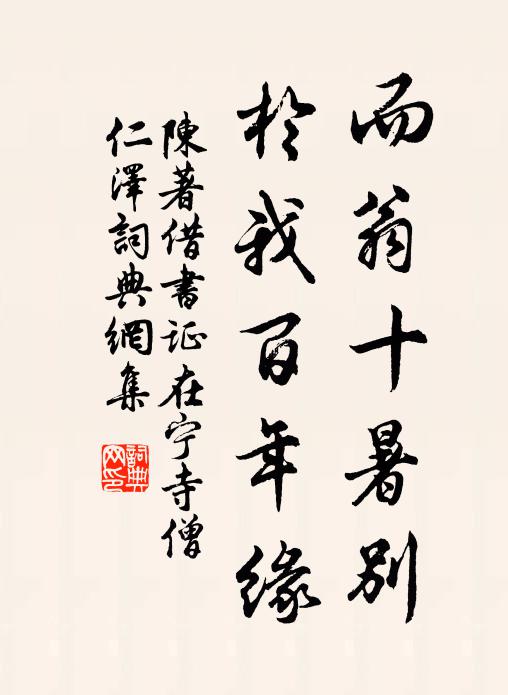 而翁十暑別
於我百年緣
陳著借書证在宁寺僧
仁澤詞典網集
詞典网印